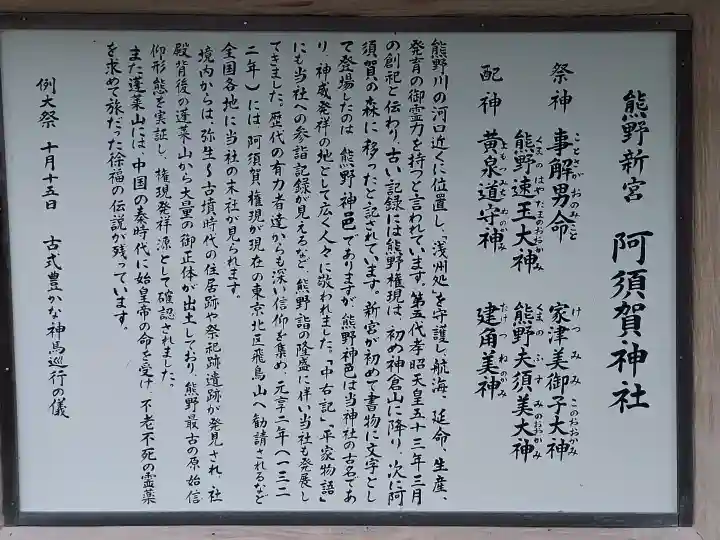 熊野新宮 阿須賀神社
祭神 事解男命 家津美御子大神
ことさかおのみこと けつみみこのおおかみ
熊野速玉大神 熊野夫須美大神
くまのはやたまのおおかみ くまのふすみのおおかみ
配神 黄泉道守神 建角美神
よもつみちもりのかみ たけつねみのかみ
熊野川の河口近くに位置し、「浅州処」を守護し、航海、延命、生産、
発育の御霊力を持つと言われています。第五代孝昭天皇五十三年三月
の創祀と伝わり、古い記録には熊野権現は、初め神倉山に降り、次に阿
須賀の森に移ったと記されています。新宮が初めて書物に文字とし
て登場したのは 熊野神邑でありますが 熊野神邑は当神社の古名であ
り、神威発祥の地として広く人々に敬われました。「中右記」、「平家物語」
にも当社への参詣記録が見えるなど、熊野詣の隆盛に伴い当社も発展し
てきました。歴代の有力者達からも深い信仰を集め、元亨二年(一三二
二年)には 阿須賀権現が現在の東京北区飛鳥山へ勧請されるなど
全国各地に当社の末社が見られます。
境内からは、弥生~古墳時代の住居跡や祭祀跡遺跡が発見され、社
殿背後の蓬莱山から大量の御正体が出土しており、熊野最古の原始信
仰形態を実証し、権現発祥源として確認されました。
また蓬莱山には、中国の秦時代に始皇帝の命を受け、不老不死の霊薬
を求めて旅だった徐福の伝説が残っています。
例大祭 十月十五日 古式豊かな神馬巡行の儀